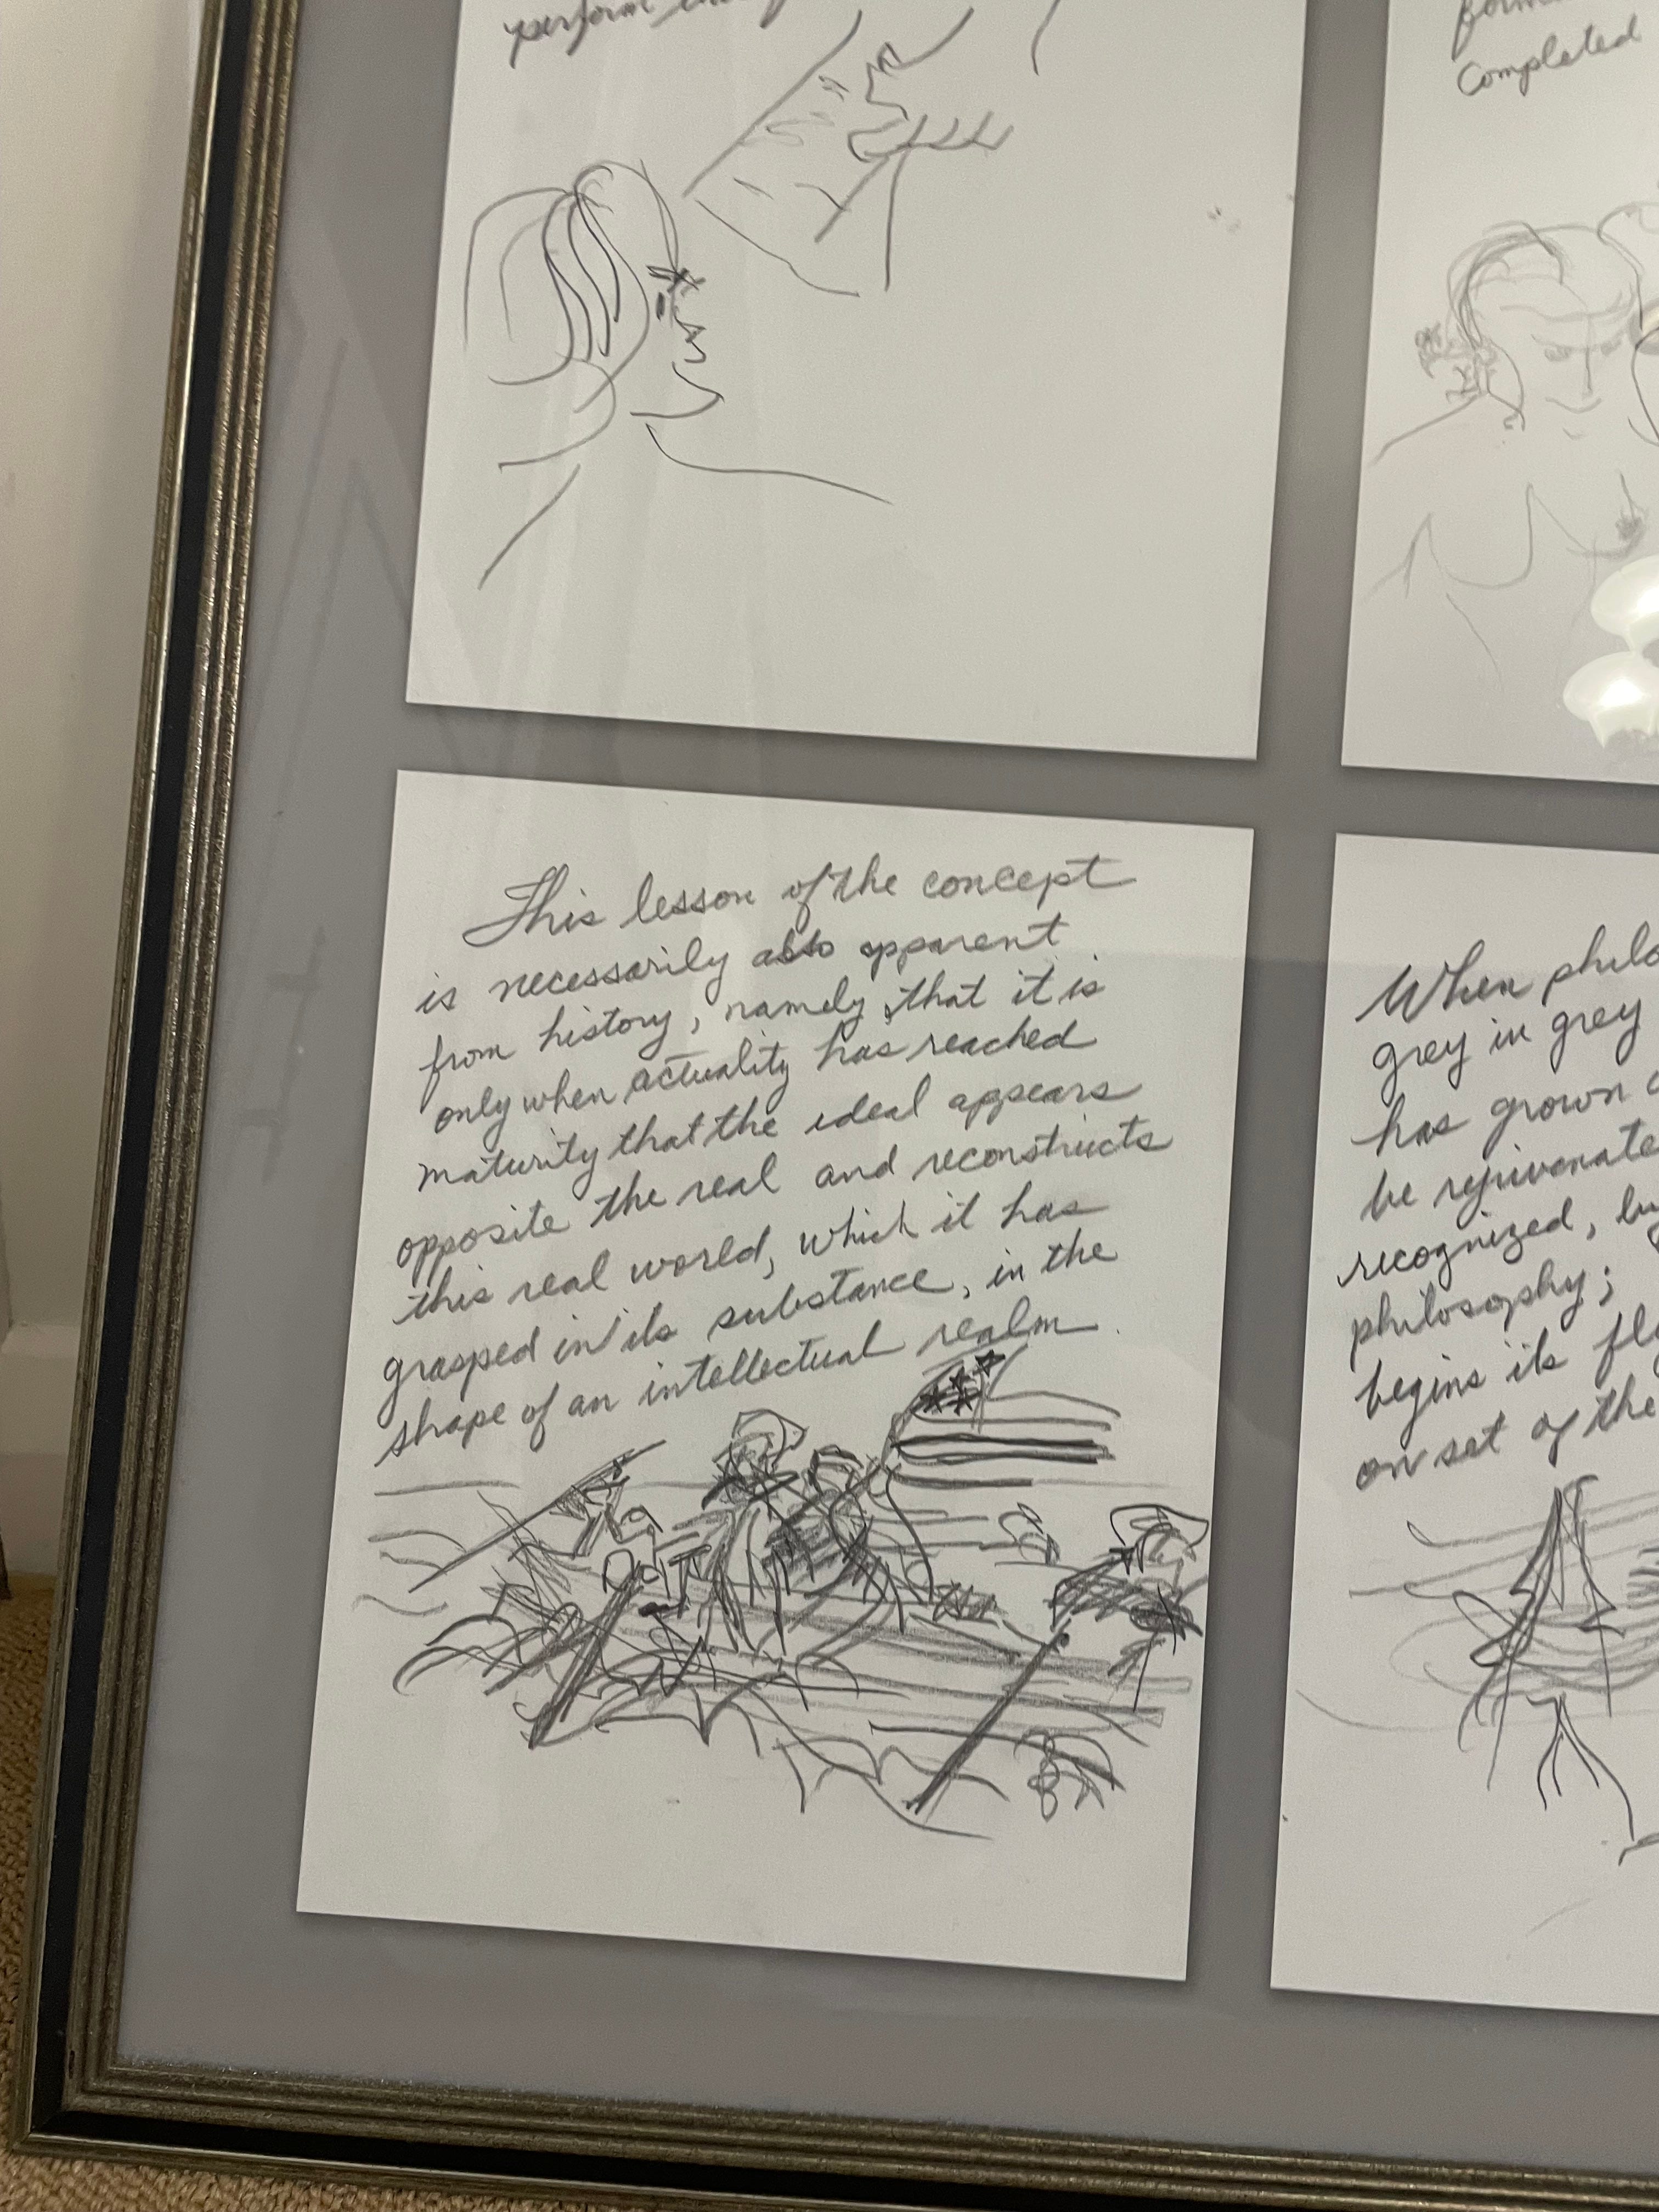 perform
form
Completed
This lesson of the concept
is necessarily also apparent
from history, namely that it is
only when actuality has reached
maturity that the ideal appears
opposite the real and reconstructs
this real world, which it has
grasped in its substance, in the
shape of an intellectual realm.
When philo
grey in grey
has grown
be rejuvenate
recognized, bu
philosophy;
begins its fl
on set of the